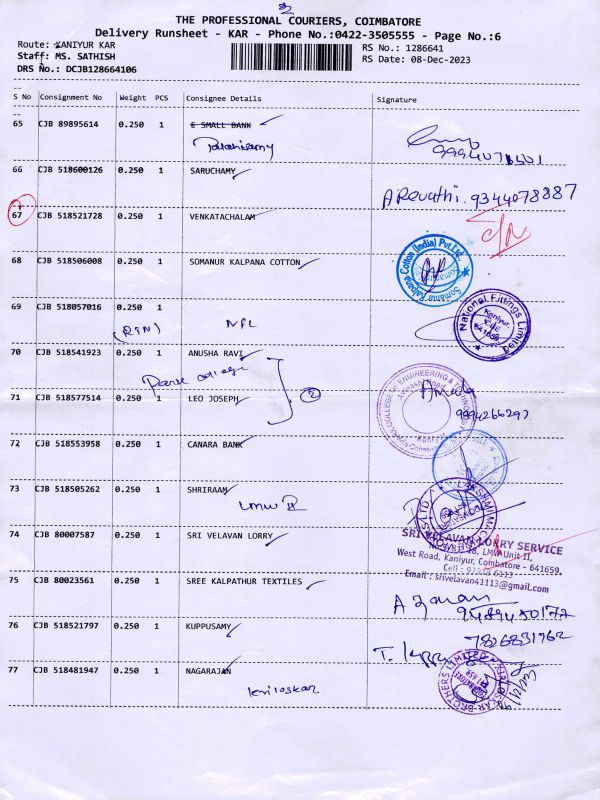 2
THE PROFESSIONAL COURIERS, COIMBATORE
Delivery Runsheet - KAR - Phone No.:0422-3505555 - Page No.:6
Route: KANIYUR KAR
RS No.: 1286641
Staff: MS. SATHISH
RS Date: 08-Dec-2023
DRS No.: DCJB128664106
S No Consignment No Weight PCS Consignee Details Signature
65 CJB 89895614 0.250 1 E SMALL BANK
66 CJB 518600126 0.250 1 SARUCHAMY
A Revathi. 9344078887
67 CJB 518521728 0.250 1 VENKATACHALAM
68 CJB 518506008 0.250 1 SOMANUR KALPANA COTTON
Somanur Kalpana Cotton (India) Pvt. Ltd.
69 CJB 518057016 0.250 1
NFL
National Fittings Limited
Kaniyur
70 CJB 518541923 0.250 1 ANUSHA RAVI
college
COLLEGE OF ENGINEERING & TECHNOLOGY
71 CJB 518577514 0.250 1 LEO JOSEPH
2
9994266297
72 CJB 518553958 0.250 1 CANARA BANK
73 CJB 518505262 0.250 1 SHRIRAAM
LMW II
74 CJB 80007587 0.250 1 SRI VELAVAN LORRY
SRI VELAVAN LORRY SERVICE
LMW Unit II,
West Road, Kaniyur, Coimbatore - 641659.
Email : srivelavan41113@gmail.com
75 CJB 80023561 0.250 1 SREE KALPATHUR TEXTILES
76 CJB 518521797 0.250 1 KUPPUSAMY
7826831962
77 CJB 518481947 0.250 1 NAGARAJAN
kiriloskar
KIRLOSKAR BROTHERS LIMITED